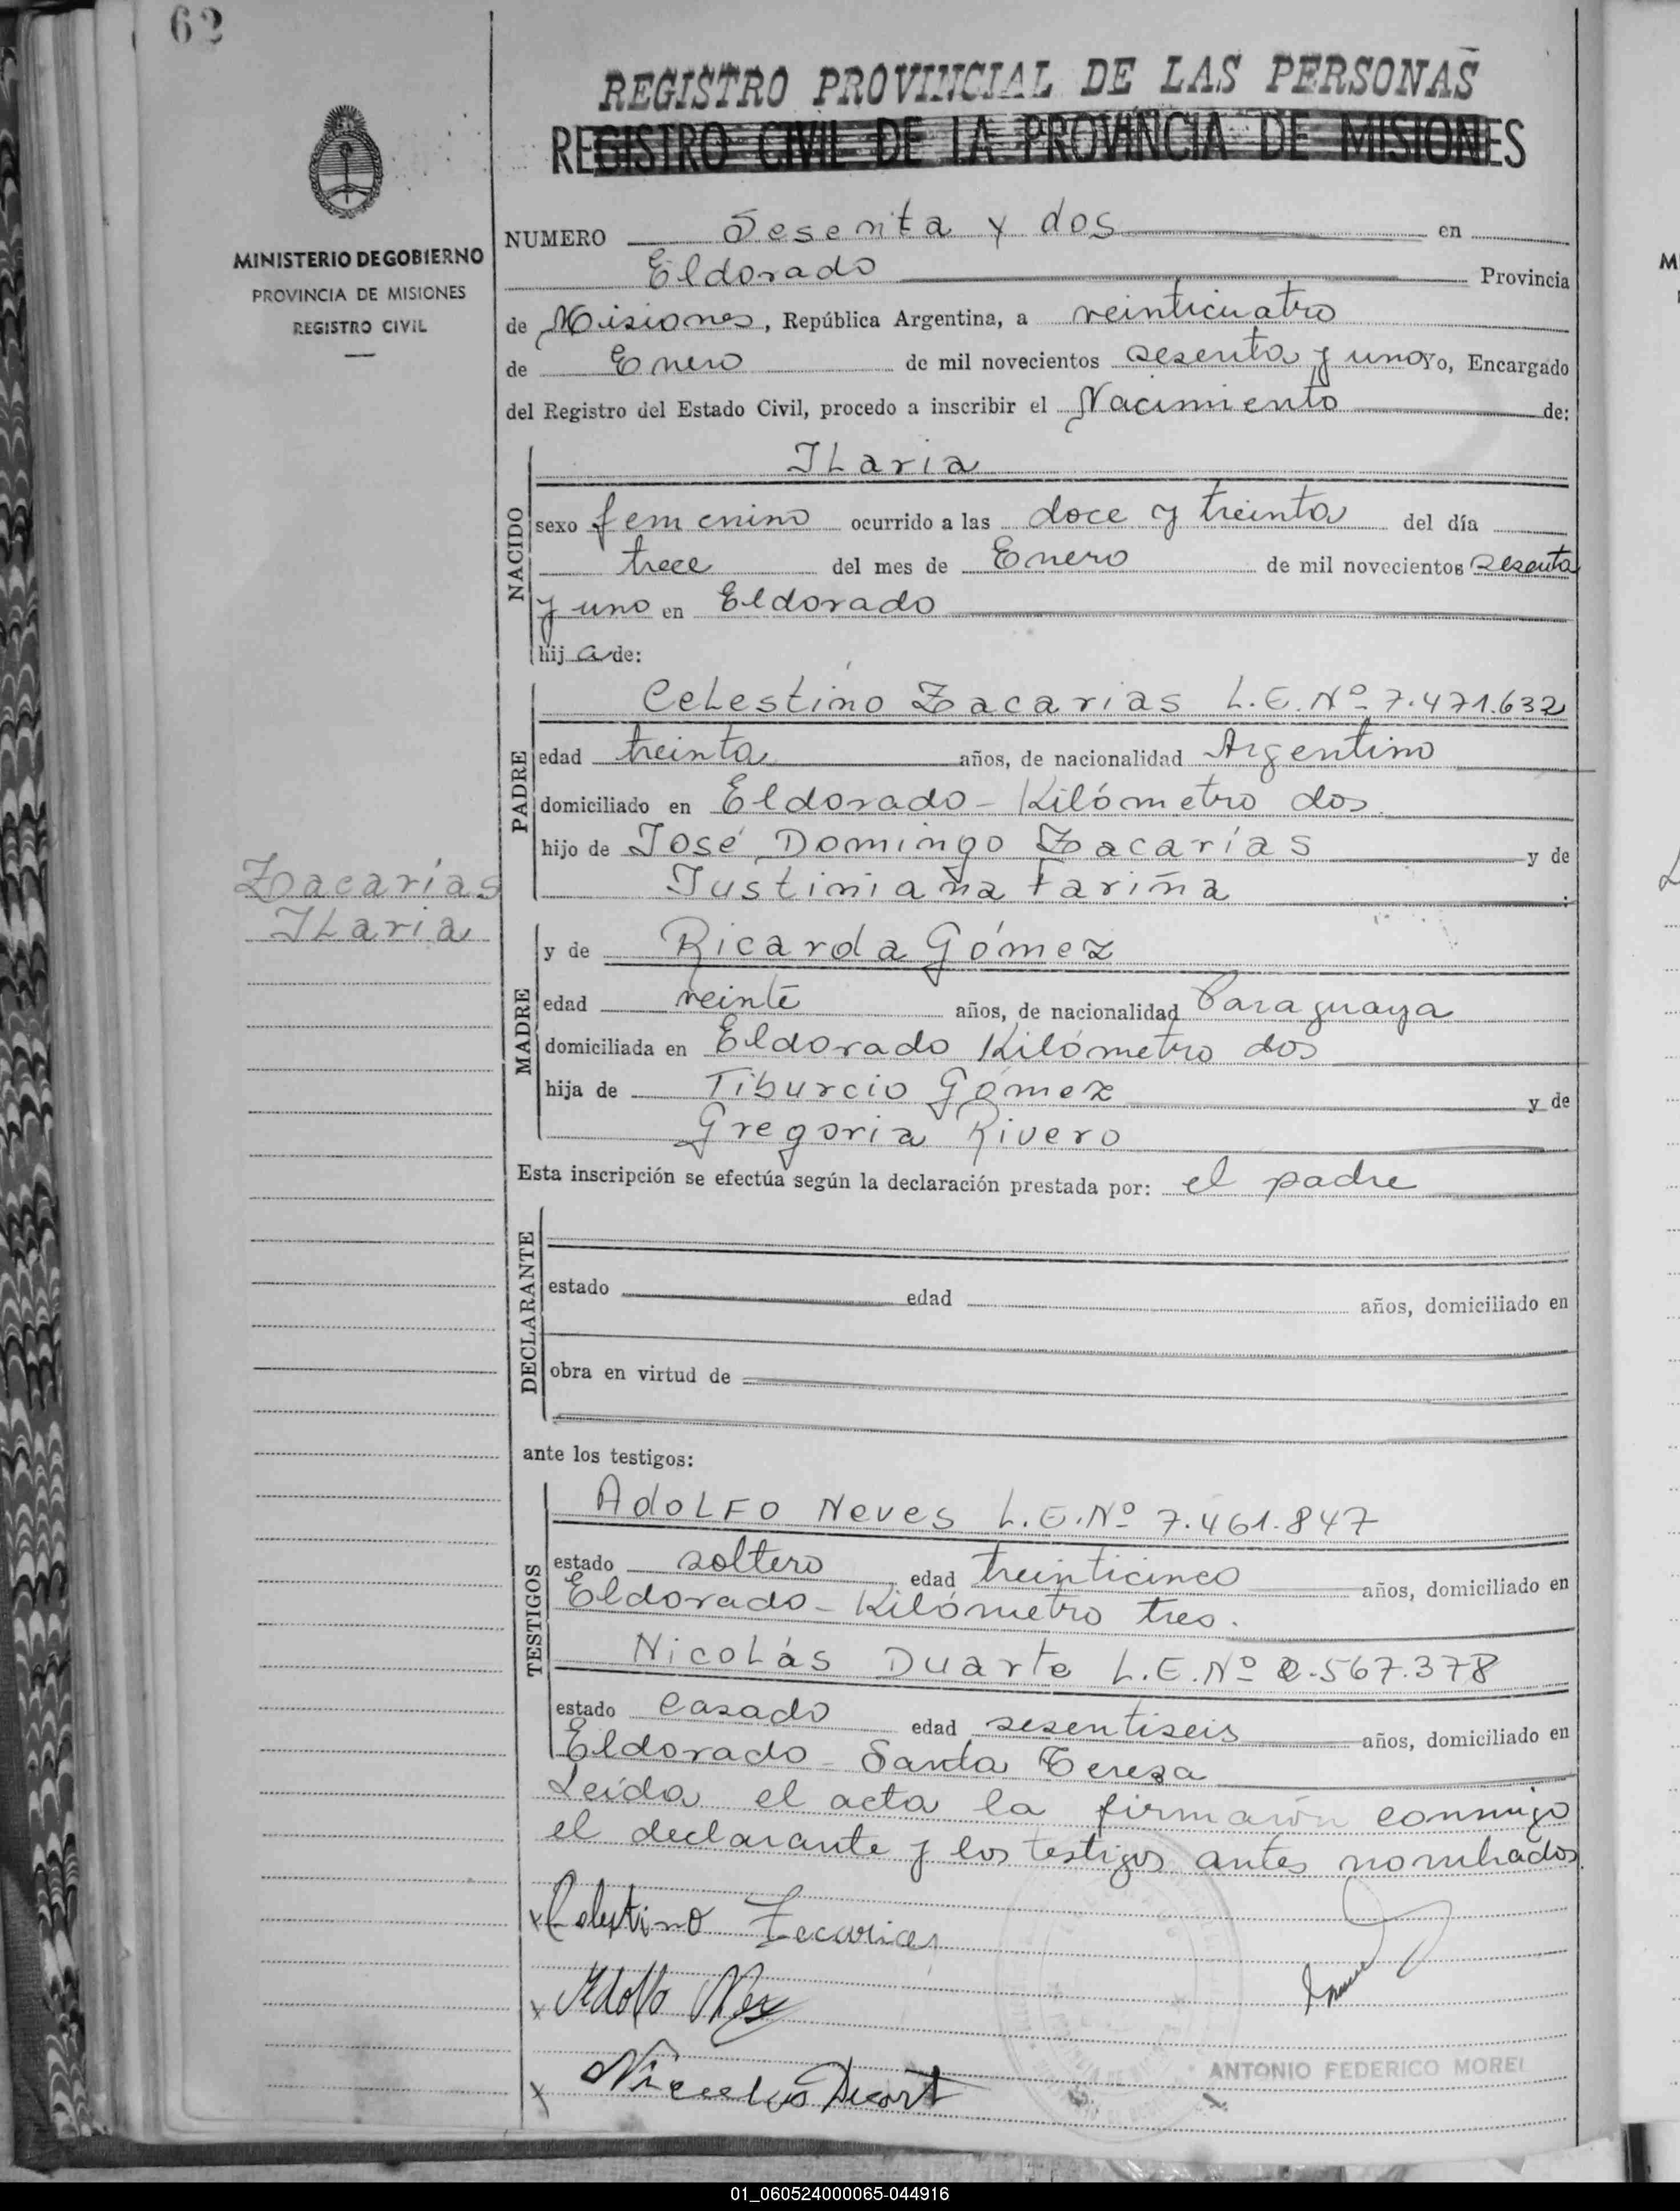 62
REGISTRO PROVINCIAL DE LAS PERSONAS
REGISTRO CIVIL DE LA PROVINCIA DE MISIONES
MINISTERIO DE GOBIERNO
PROVINCIA DE MISIONES
REGISTRO CIVIL
NUMERO Sesenta y dos en
Eldorado Provincia
de Misiones, República Argentina, a veinticuatro
de Enero de mil novecientos sesenta y uno Yo, Encargado
del Registro del Estado Civil, procedo a inscribir el Nacimiento de:
NACIDO
ILaria
sexo femenino ocurrido a las doce y treinta del día
trece del mes de Enero de mil novecientos sesenta
y uno en Eldorado
hija de:
PADRE
Celestino Zacarias L.E. Nº 7.471.632
edad treinta años, de nacionalidad Argentino
domiciliado en Eldorado - Kilómetro dos
hijo de José Domingo Zacarías y de
Justiniana Fariña
Zacarías
ILaria
MADRE
y de Ricarda Gómez
edad veinte años, de nacionalidad Paraguaya
domiciliada en Eldorado Kilómetro dos
hija de Tiburcio Gómez y de
Gregoria Rivero
Esta inscripción se efectúa según la declaración prestada por: el padre
DECLARANTE
estado edad años, domiciliado en
obra en virtud de
ante los testigos:
TESTIGOS
AdoLFO Neves L.E. Nº 7.461.847
estado soltero edad treinticinco años, domiciliado en
Eldorado - Kilómetro tres.
NicoLás Duarte L.E. Nº 2.567.378
estado casado edad sesentiseis años, domiciliado en
Eldorado - Santa Teresa
Leída el acta la firmaron conmigo
el declarante y los testigos antes nombrados.
x Celestino Zecarias
x Adolfo
x
ANTONIO FEDERICO MOREL
01_060524000065-044916